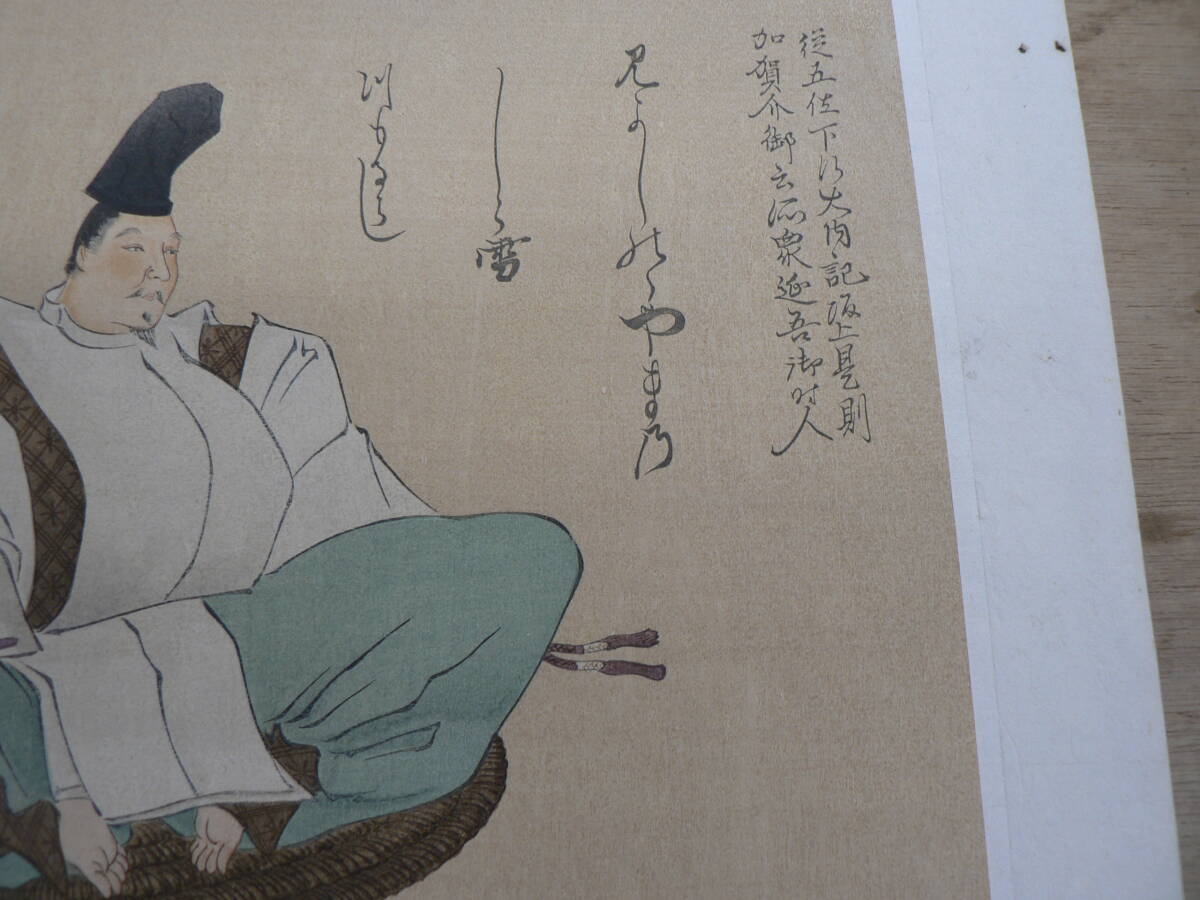 従五位下行大内記坂上是則
加賀介御書所衆延喜御時人
見よしのゝやまの
しら雪
つもるらし